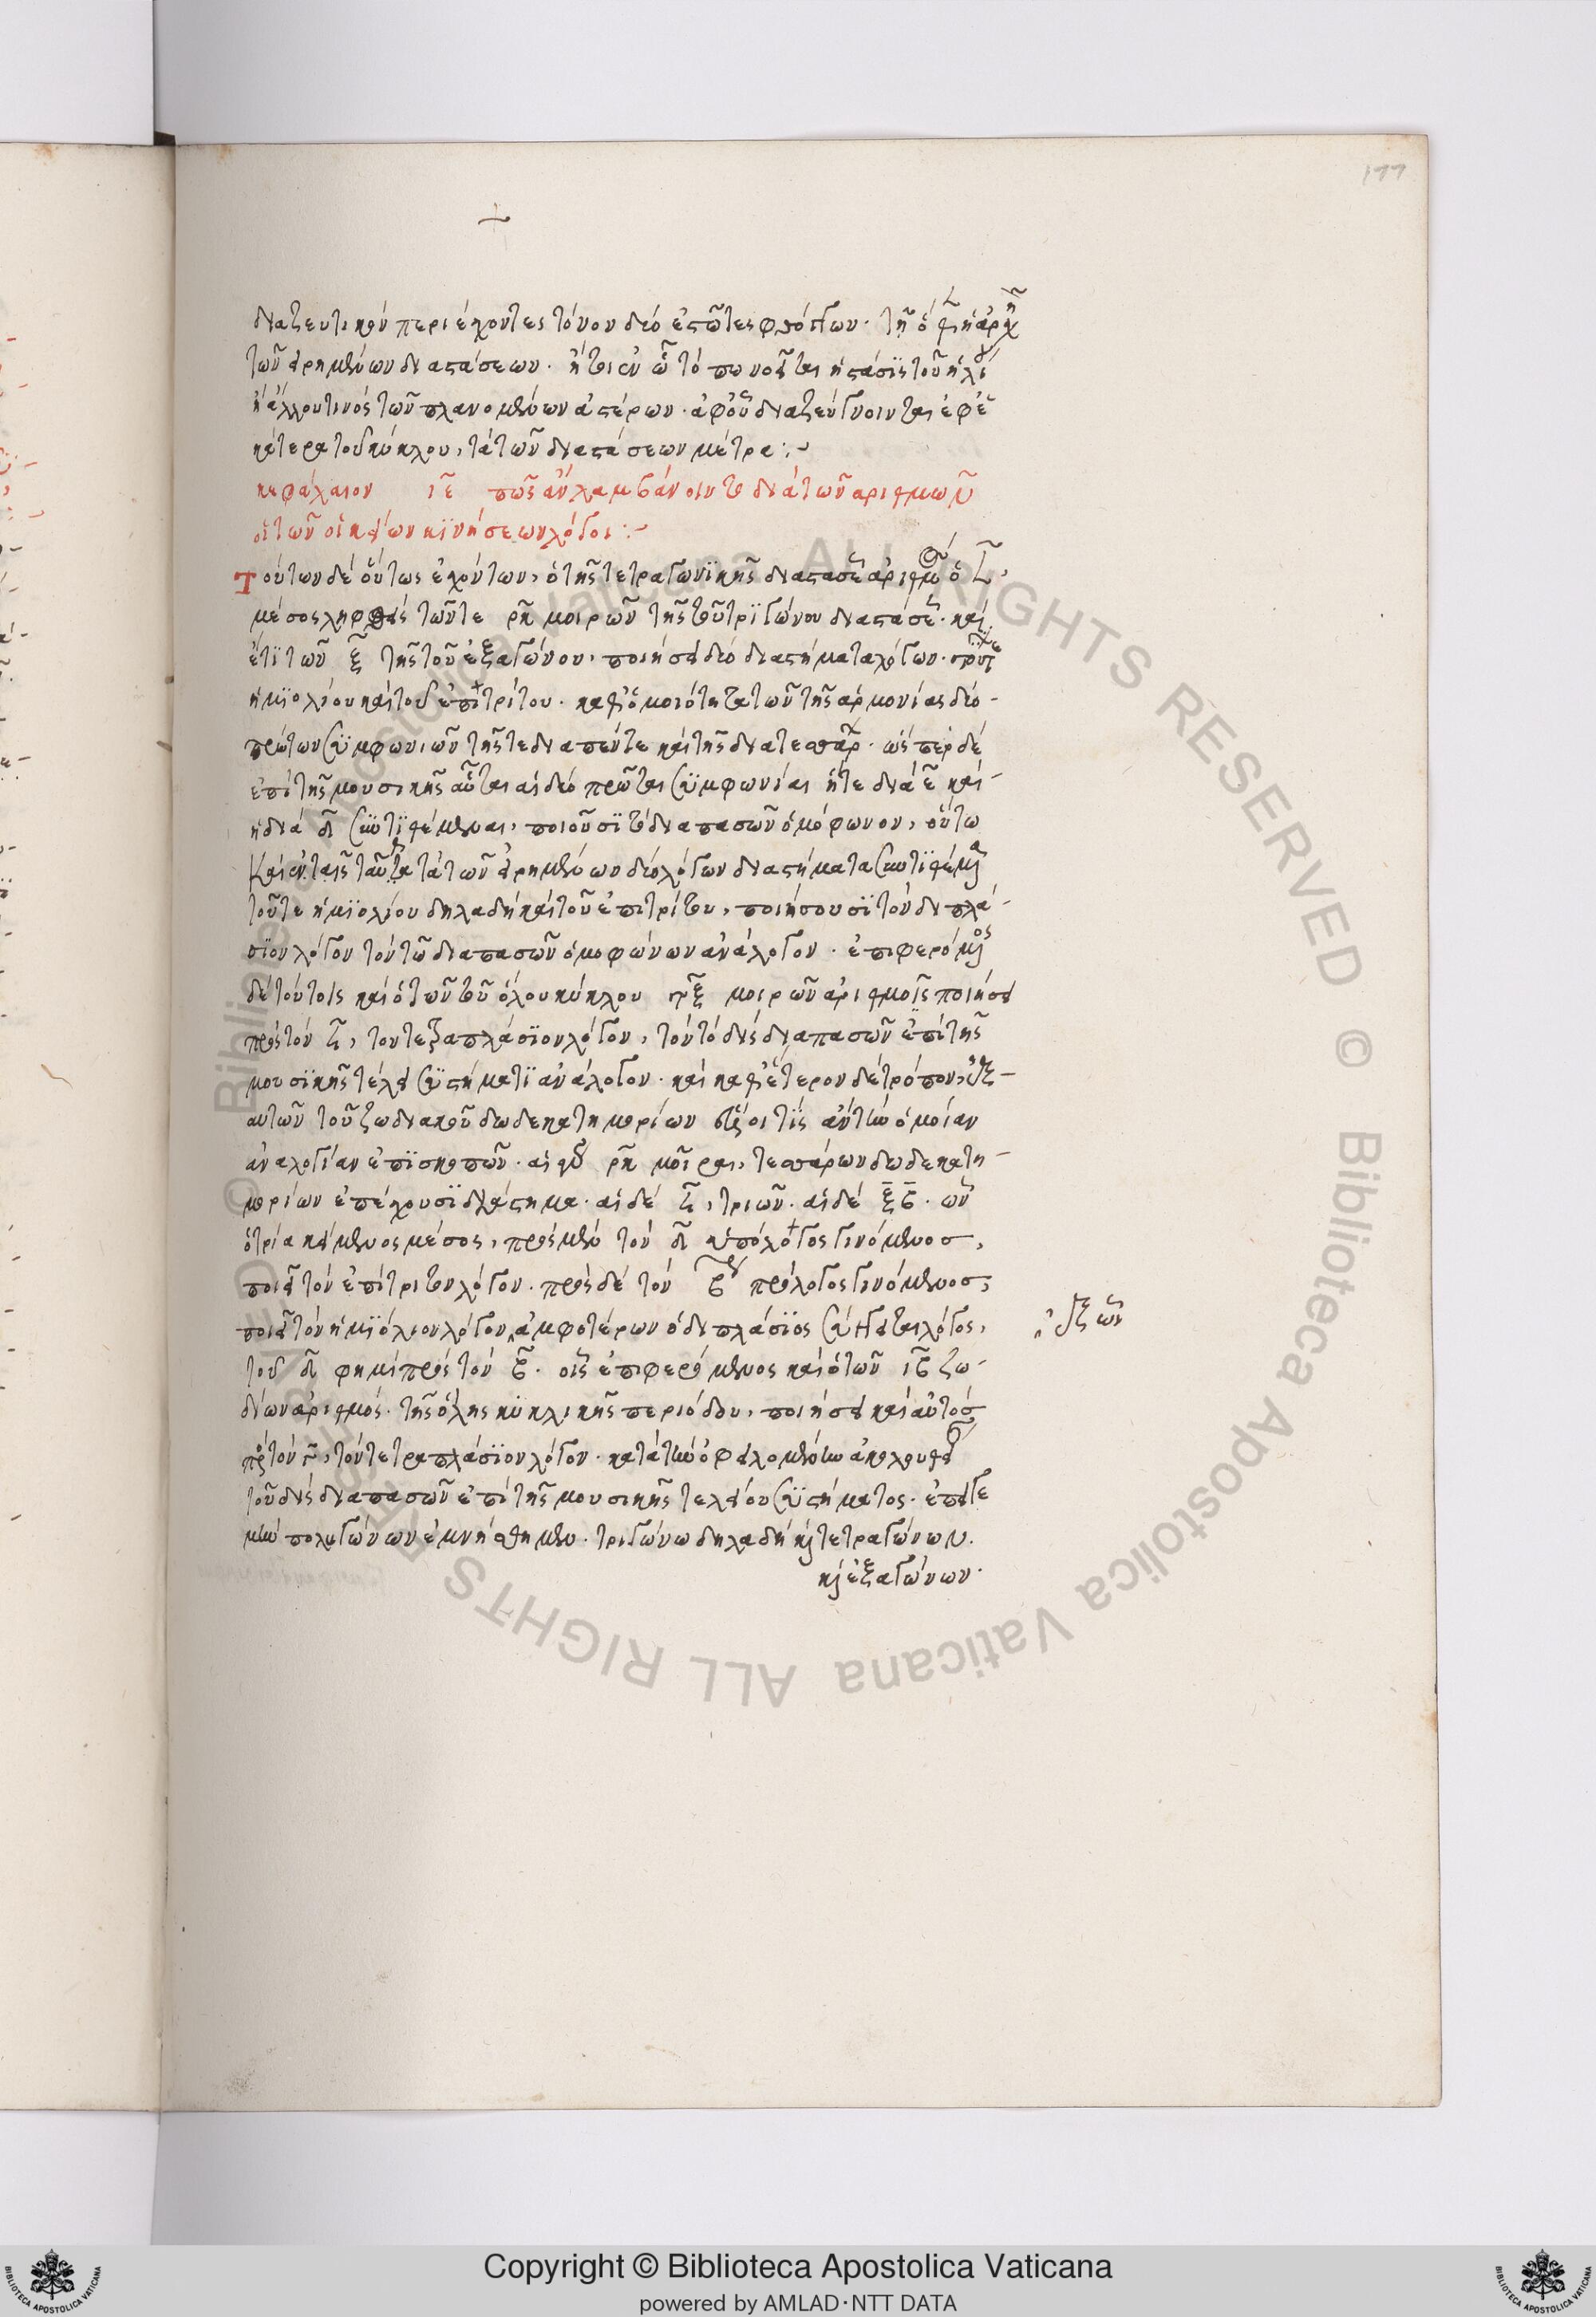 177
διαζευτικὸν περιέχοντες τόνον δύο ἑστῶτες φθόγγων. τῇ ὅθεν ἡ ἀρχὴ
τῶν εἰρημένων διαστάσεων. ἥτις ἐν ᾧ τόπω νοεῖται ἡ στάσϊς τοῦ ἡλίου
ἢ ἄλλου τινός τῶν πλανομένων ἀστέρων. ἀφ' οὗ διαζεύγνυνται ἐφ' ἑ
κάτερα τοῦ κύκλου, τὰ τῶν διαστάσεων μέτρα:~
κεφάλαιον ιε πῶς ἂν λαμβάνοιντο διὰ τῶν αριθμῶν
οἱ τῶν οἰκείων κϊνήσεων λόγοι:~
Τούτων δὲ οὕτως ἐχόντων, ὁ τῆς τετραγωνϊκῆς διαστάσεως ἀριθμὸς ὁ ϟ,
μέσος ληφθεὶς τῶν τε ρκ μοιρῶν τῆς τοῦ τρϊγώνου διαστάσεως. καὶ
ἔτϊ τῶν ξ τῆς τοῦ ἑξαγώνου, ποιήσει δύο διαστήματα λόγων. τοῦτε
ἡμϊολίου καὶ τοῦ ἐπιτρίτου. καθ' ὁμοιότητα τῶν τῆς ἁρμονίας δύο
πρώτων συμφωνιῶν τῆς τε διαπέντε καὶ τῆς διατεσσάρων. ὥσπερ δὲ
ἐπὶ τῆς μουσικῆς αὗται αἱ δύο πρῶται συμφωνίαι ἥτε διὰ ε καὶ
ἡ διὰ δ συντϊθέμεναι, ποιοῦσϊ τὸ διαπασῶν ὁμόφωνον, οὕτω
καὶ ἐνταῦθα τὰ τῶν εἰρημένων δύο λόγων διαστήματα συντϊθέμενα
τοῦτε ἡμϊολίου δηλαδὴ καὶ τοῦ ἐπιτρίτου, ποιήσουσϊ τὸν διπλά
σϊον λόγον τὸν τῶ διαπασῶν ὁμοφώνων ἀνάλογον. ἐπιφερόμενος
δὲ τούτοις καὶ ὁ τῶν τοῦ ὅλου κύκλου τξ μοιρῶν ἀριθμοῖς ποιήσει
πρὸς τὸν ϟ, τον τεξαπλάσϊον λόγον, τὸν τὸ δὶς διαπασῶν ἐπὶ τῆς
μουσϊκῆς τέλει συστήματϊ ἀνάλογον. καὶ καθ' ἕτερον δὲ τρόπον, ἐξ
αυτῶν τοῦ ζωδιακοῦ δωδεκατημορίων εὕροι τϊς ἂν τὴν ὁμοίαν
ἀναλογίαν ἐπϊσκοπῶν. αἱ γὰρ ρκ μοῖραι, τεσσάρων δωδεκατη
μορίων ἐπέχουσϊ διάστημα. αἱ δὲ ϟ, τριῶν. αἱ δὲ ξ β. ὧν
ὁ τρία κείμενος μέσος, πρὸς μὲν τὸν δ ὑπόλογος γινόμενοσ,
ποιεῖ τὸν ἐπίτριτον λόγον. πρὸς δὲ τὸν β πρόλογος γινόμενοσ,
ποιεῖ τὸν ἡμϊόλιον λόγον, ἀμφοτέρων ὁ διπλάσϊος συνάγεται λόγος,
ἐξ ὧν
τοῦ δ φημὶ πρὸς τὸν β. οἷς ἐπιφερόμενος καὶ ὁ τῶν ιβ ζω
δίων ἀριθμός. τῆς ὅλης κϋκλικῆς περιόδου, ποιήσει καὶ αὐτὸσ
πρὸς τὸν γ, τὸν τετραπλάσϊον λόγον. κατὰ τὴν ὀφειλομένην ἀκολουθείαν
τοῦ δὶς διαπασῶν ἐπὶ τῆς μουσικῆς τελείου συστήματος. ἐπεί γε
μὴν πολυγώνων ἐμνήσθημεν. τριγώνω δηλαδὴ καὶ τετραγώνων.
καὶ ἑξαγώνων.
Copyright © Biblioteca Apostolica Vaticana
powered by AMLAD·NTT DATA